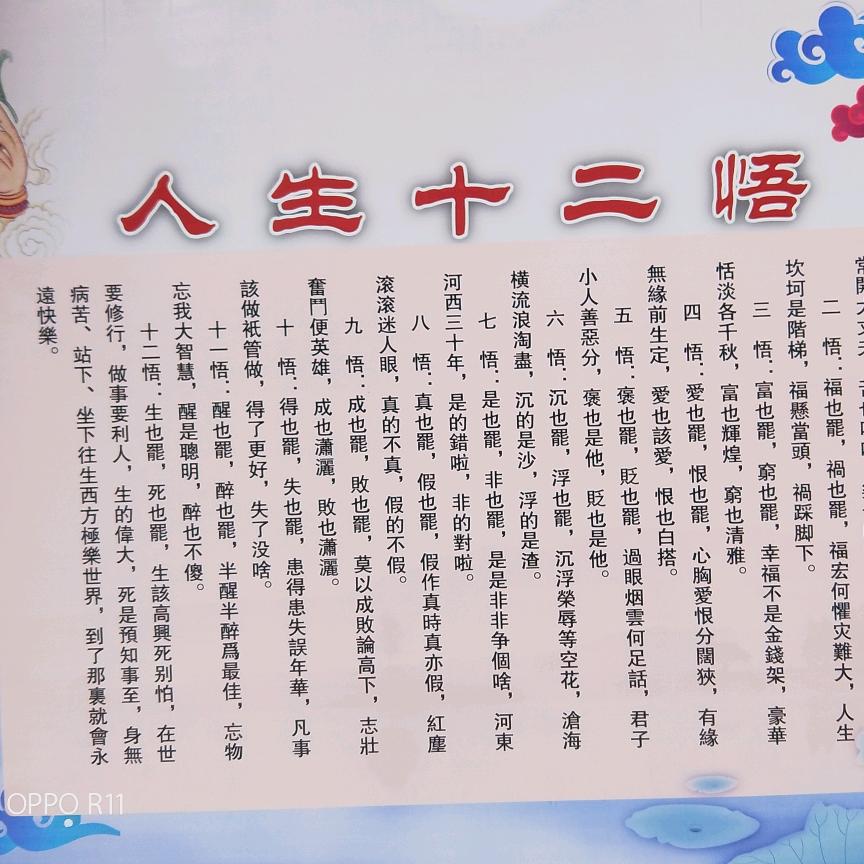 人生十二悟
二 悟：福也罷，禍也罷，福宏何懼灾難大，人生
坎坷是階梯，福懸當頭，禍踩脚下。
三 悟：富也罷，窮也罷，幸福不是金錢架，豪華
恬淡各千秋，富也輝煌，窮也清雅。
四 悟：愛也罷，恨也罷，心胸愛恨分闊狹，有緣
無緣前生定，愛也該愛，恨也白搭。
五 悟：褒也罷，貶也罷，過眼烟雲何足話，君子
小人善惡分，褒也是他，貶也是他。
六 悟：沉也罷，浮也罷，沉浮榮辱等空花，滄海
橫流浪淘盡，沉的是沙，浮的是渣。
七 悟：是也罷，非也罷，是是非非争個啥，河東
河西三十年，是的錯啦，非的對啦。
八 悟：真也罷，假也罷，假作真時真亦假，紅塵
滚滚迷人眼，真的不真，假的不假。
九 悟：成也罷，敗也罷，莫以成敗論高下，志壯
奮鬥便英雄，成也瀟灑，敗也瀟灑。
十 悟：得也罷，失也罷，患得患失誤年華，凡事
該做衹管做，得了更好，失了没啥。
十一悟：醒也罷，醉也罷，半醒半醉爲最佳，忘物
忘我大智慧，醒是聰明，醉也不傻。
十二悟：生也罷，死也罷，生該高興死别怕，在世
要修行，做事要利人，生的偉大，死是預知事至，身無
病苦、站下、坐下往生西方極樂世界，到了那裏就會永
遠快樂。
OPPO R11